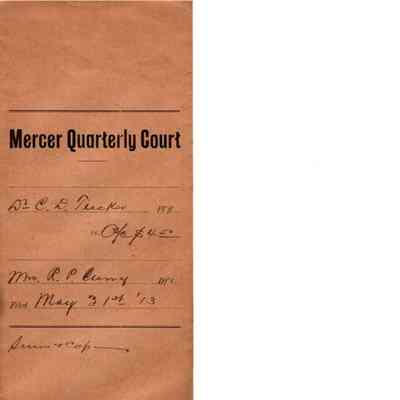 Mercer Quarterly Court
Dr. C. D. Tucker Plff.
vs. O/c $4.50
Mrs. R. P. Curry Dft.
Filed May 31st '13
Sum & cop